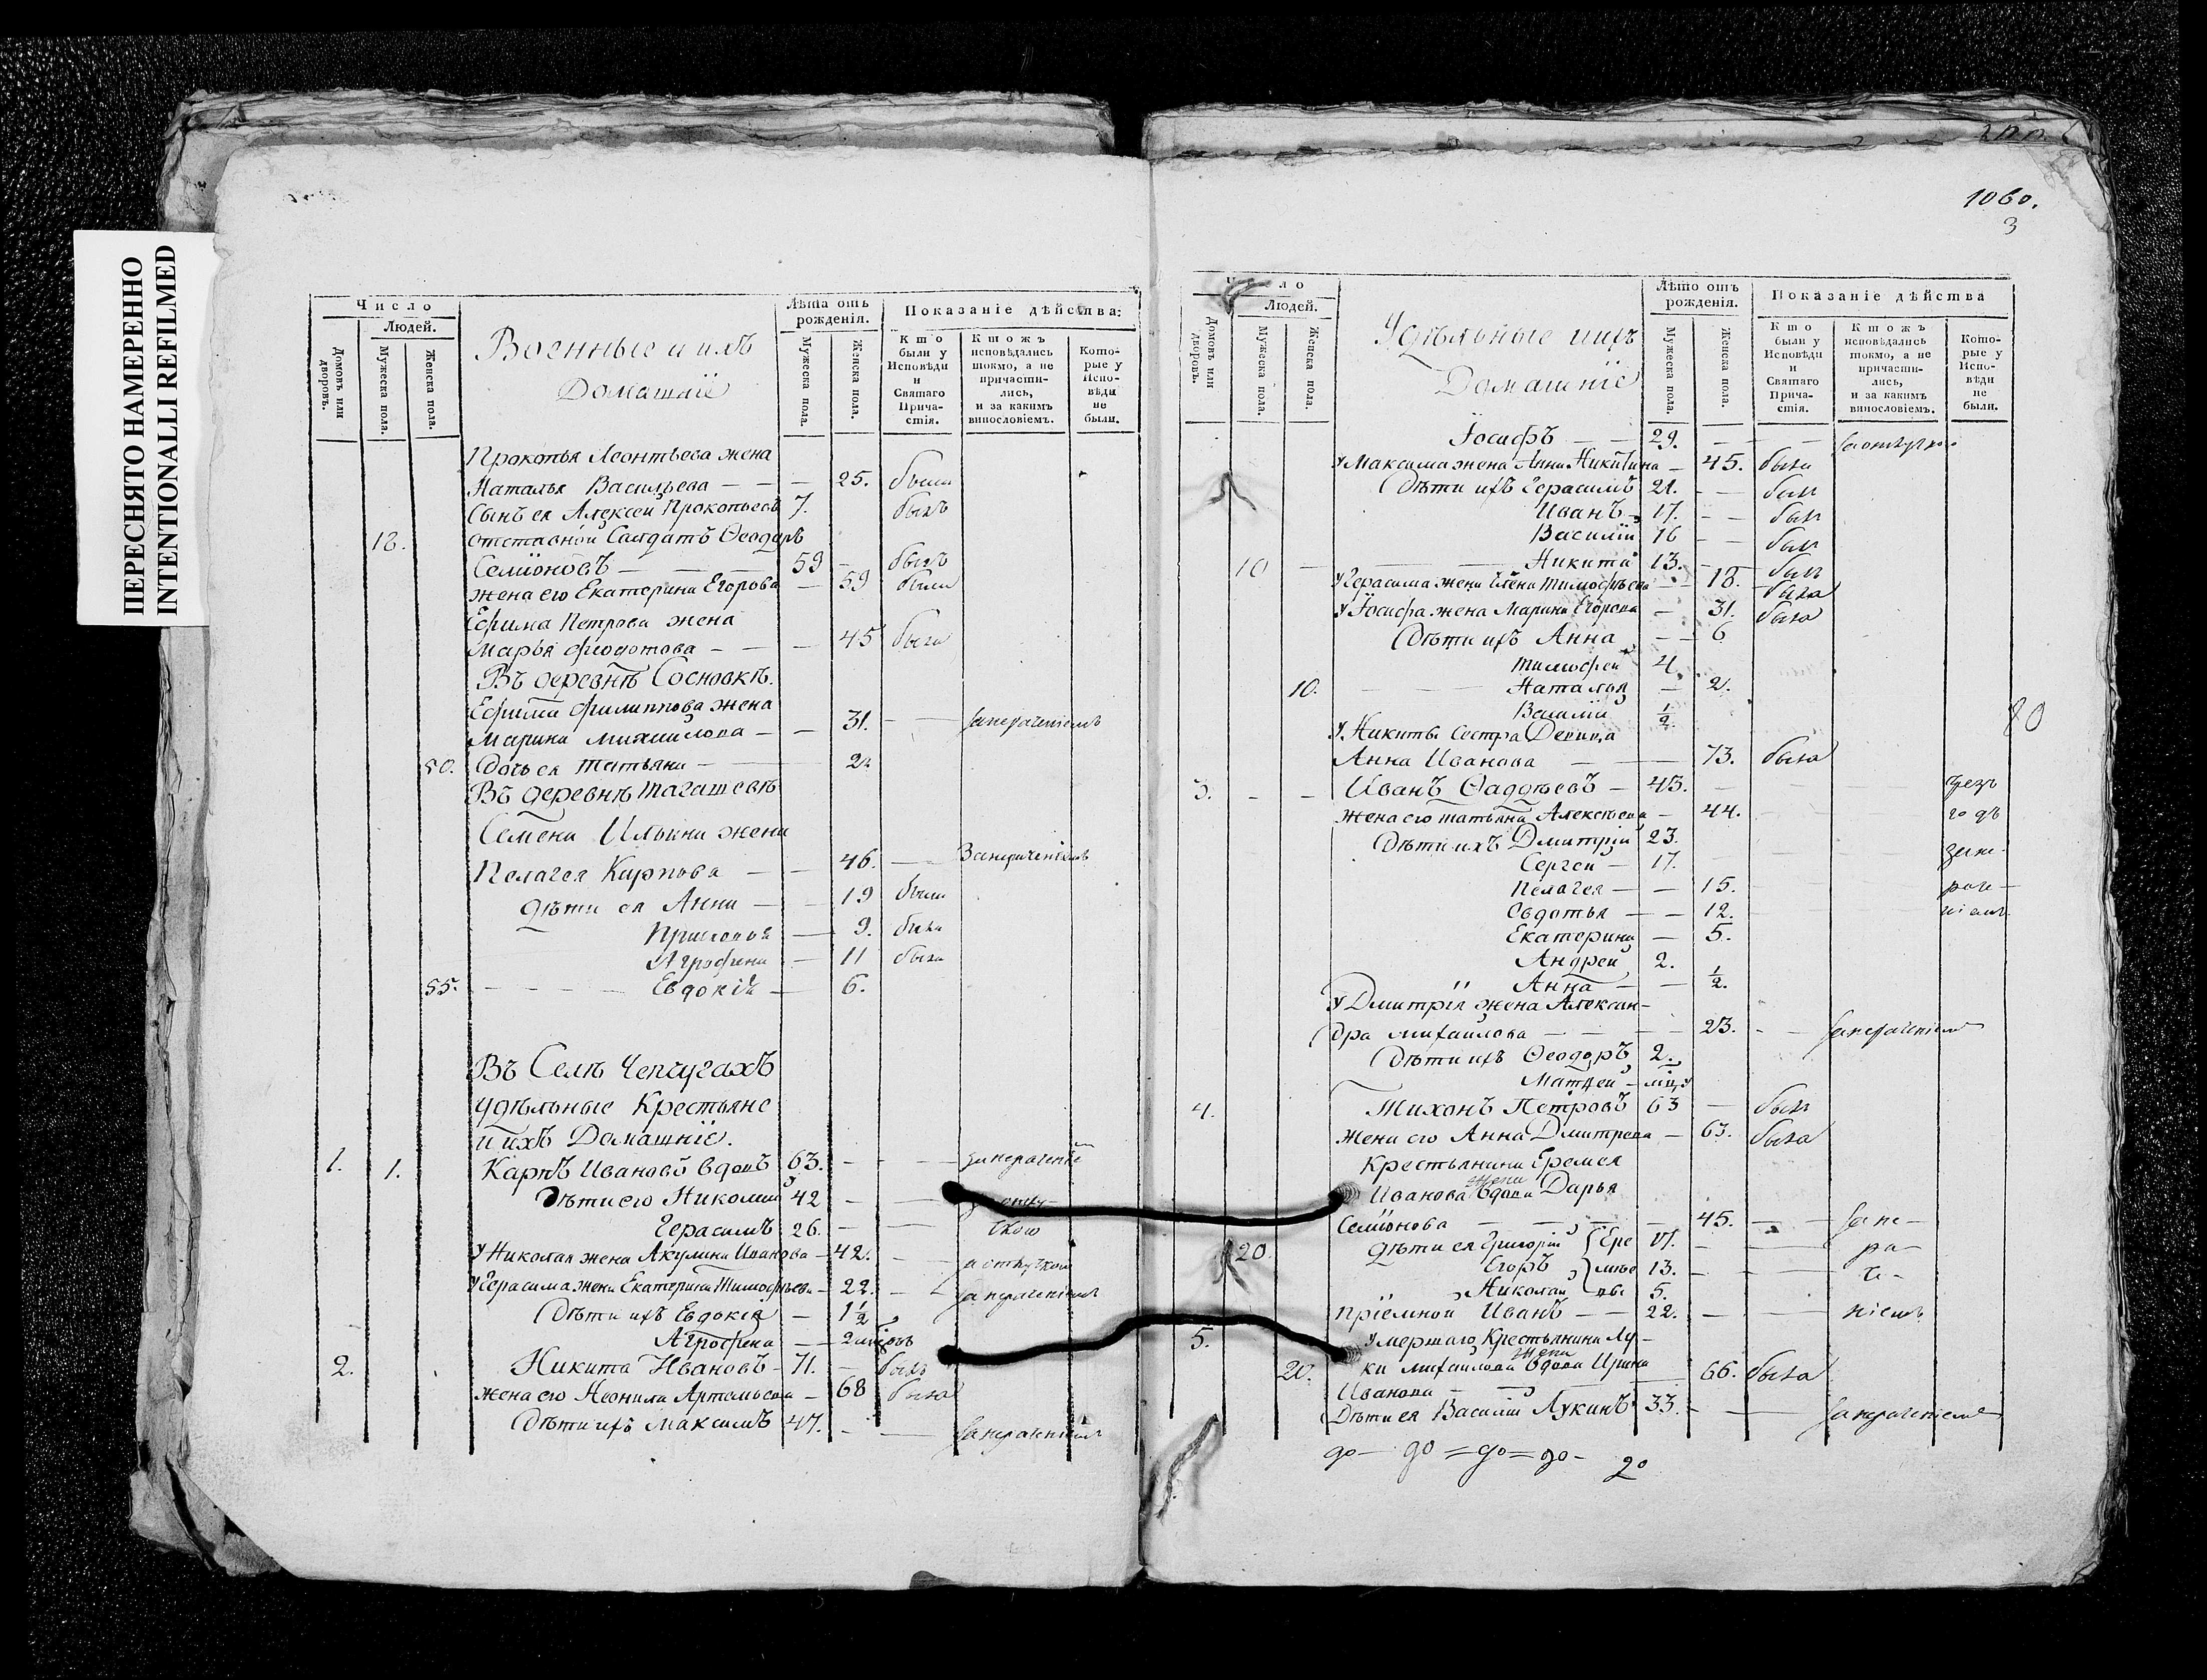 ПЕРЕСНЯТО НАМЕРЕННО
INTENTIONALLI REFILMED
Число
Людей.
Домовъ или дворовъ.
Мужеска пола.
Женска пола.
Военные и ихъ
Домашніе
Лѣта отъ рожденія.
Мужеска пола.
Женска пола.
Показаніе дѣйства:
Кто были у Исповѣди и Святаго Причастія.
Ктожъ исповѣдались токмо, а не причастились, и за какимъ винословіемъ.
Которые у Исповѣди не были.
Прокопья Леонтьева жена
Наталья Васильева — — — 25. была
Сынъ ея Алексей Прокопьевъ 7. былъ
18. отставной Салдатъ Ѳеодоръ
Семіоновъ — — — 59 — былъ
жена его Екатерина Егорова — 59 была
Ефима Петрова жена
Марья Фіодотова — — — 45 была
Въ деревнѣ Сосновкѣ.
Ефима Филиппова жена
Марина Михаилова — — 31. — — занераченіемъ
50. Дочь ея Татьяна — — 2
Въ деревнѣ Тагашевѣ
Семена Ильина жена
Пелагея Карпова — — 46. — Занераченіемъ
дѣти ея Анна — — 19 была
Присковья — 9. была
Агрофена — 11 была
55. — — — Евдокія — 6.
Въ Селѣ Чепчугахъ
Удѣльные Крестьяне
и ихъ Домашніе.
1. 1. Карпъ Ивановъ вдовъ 63. — — — занераченіе
Дѣти его Николай 42 — —
Герасимъ 26. — —
У Николая жена Акулина Иванова — 42. — заотлучкою
У Герасима жена Екатерина Тимофѣева — 22. — занераченіемъ
Дѣти ихъ Евдокія — 1½
Агрофена — 2
2. Никита Ивановъ — 71. — былъ
жена его Неонила Артамоновa — 68 была
Дѣти ихъ Максимъ 47. — — занераченіемъ
1060.
3
Людей.
Домовъ или дворовъ.
Мужеска пола.
Женска пола.
Удѣльные ихъ
Домашніе
Лѣто отъ рожденія.
Мужеска пола.
Женска пола.
Показаніе дѣйства
Кто были у Исповѣди и Святаго Причастія.
Ктожъ исповѣдались токмо, а не причастились, и за какимъ винословіемъ.
Которые у Исповѣди не были.
Іосифъ — — 29. — — — заотлучкою
У Максима жена Анна Никитина — 45. была
Дѣти ихъ Герасимъ 21. — — былъ
Иванъ 17. — — былъ
Василій 16 — — былъ
10 — Никита 13. — — былъ
У Герасима жена Елена Тимофѣева — 18. — была
У Іосифа жена Марина Егорова — 31. была
Дѣти ихъ Анна — — 6
Тимофей 4
10. — — Наталья — 2.
Василій ½
У Никиты Сестра Девица
Анна Иванова — — 73. была
80
3. — — Иванъ Ѳаддѣевъ — 45. — чрезъ
жена его Татьяна Алексѣева — 44. годъ
Дѣти ихъ Дмитрій 23. зане-
Сергей — 17.
Пелагея — — 15. раче-
Овдотья — — 12. ніемъ
Екатерина — 5.
Андрей 2.
Анна — — ½.
У Дмитрія жена Алексан-
дра Михайлова — — — 23. — — занераченіемъ
Дѣти ихъ Ѳеодоръ 2.
Матвей —
4. Тихонъ Петровъ 63 — былъ
жена его Анна Дмитрева — 63. была
Крестьянина Еремея
Иванова жена вдова Дарья
Семіонова — — — 45. — — зане-
20. дѣти ея Григорій Ере 17. — — ра-
Егоръ мѣе 13. — — че-
Николай вы 5.
пріемной Иванъ — — 22. — — ніемъ.
5. Умершаго Крестьянина Лу-
20. ки Михайлова жена вдова Ирина
Иванова — — — 66. была
Дѣти ея Василій Лукинъ 33. — — занераченіемъ
до — до = до = до — 20